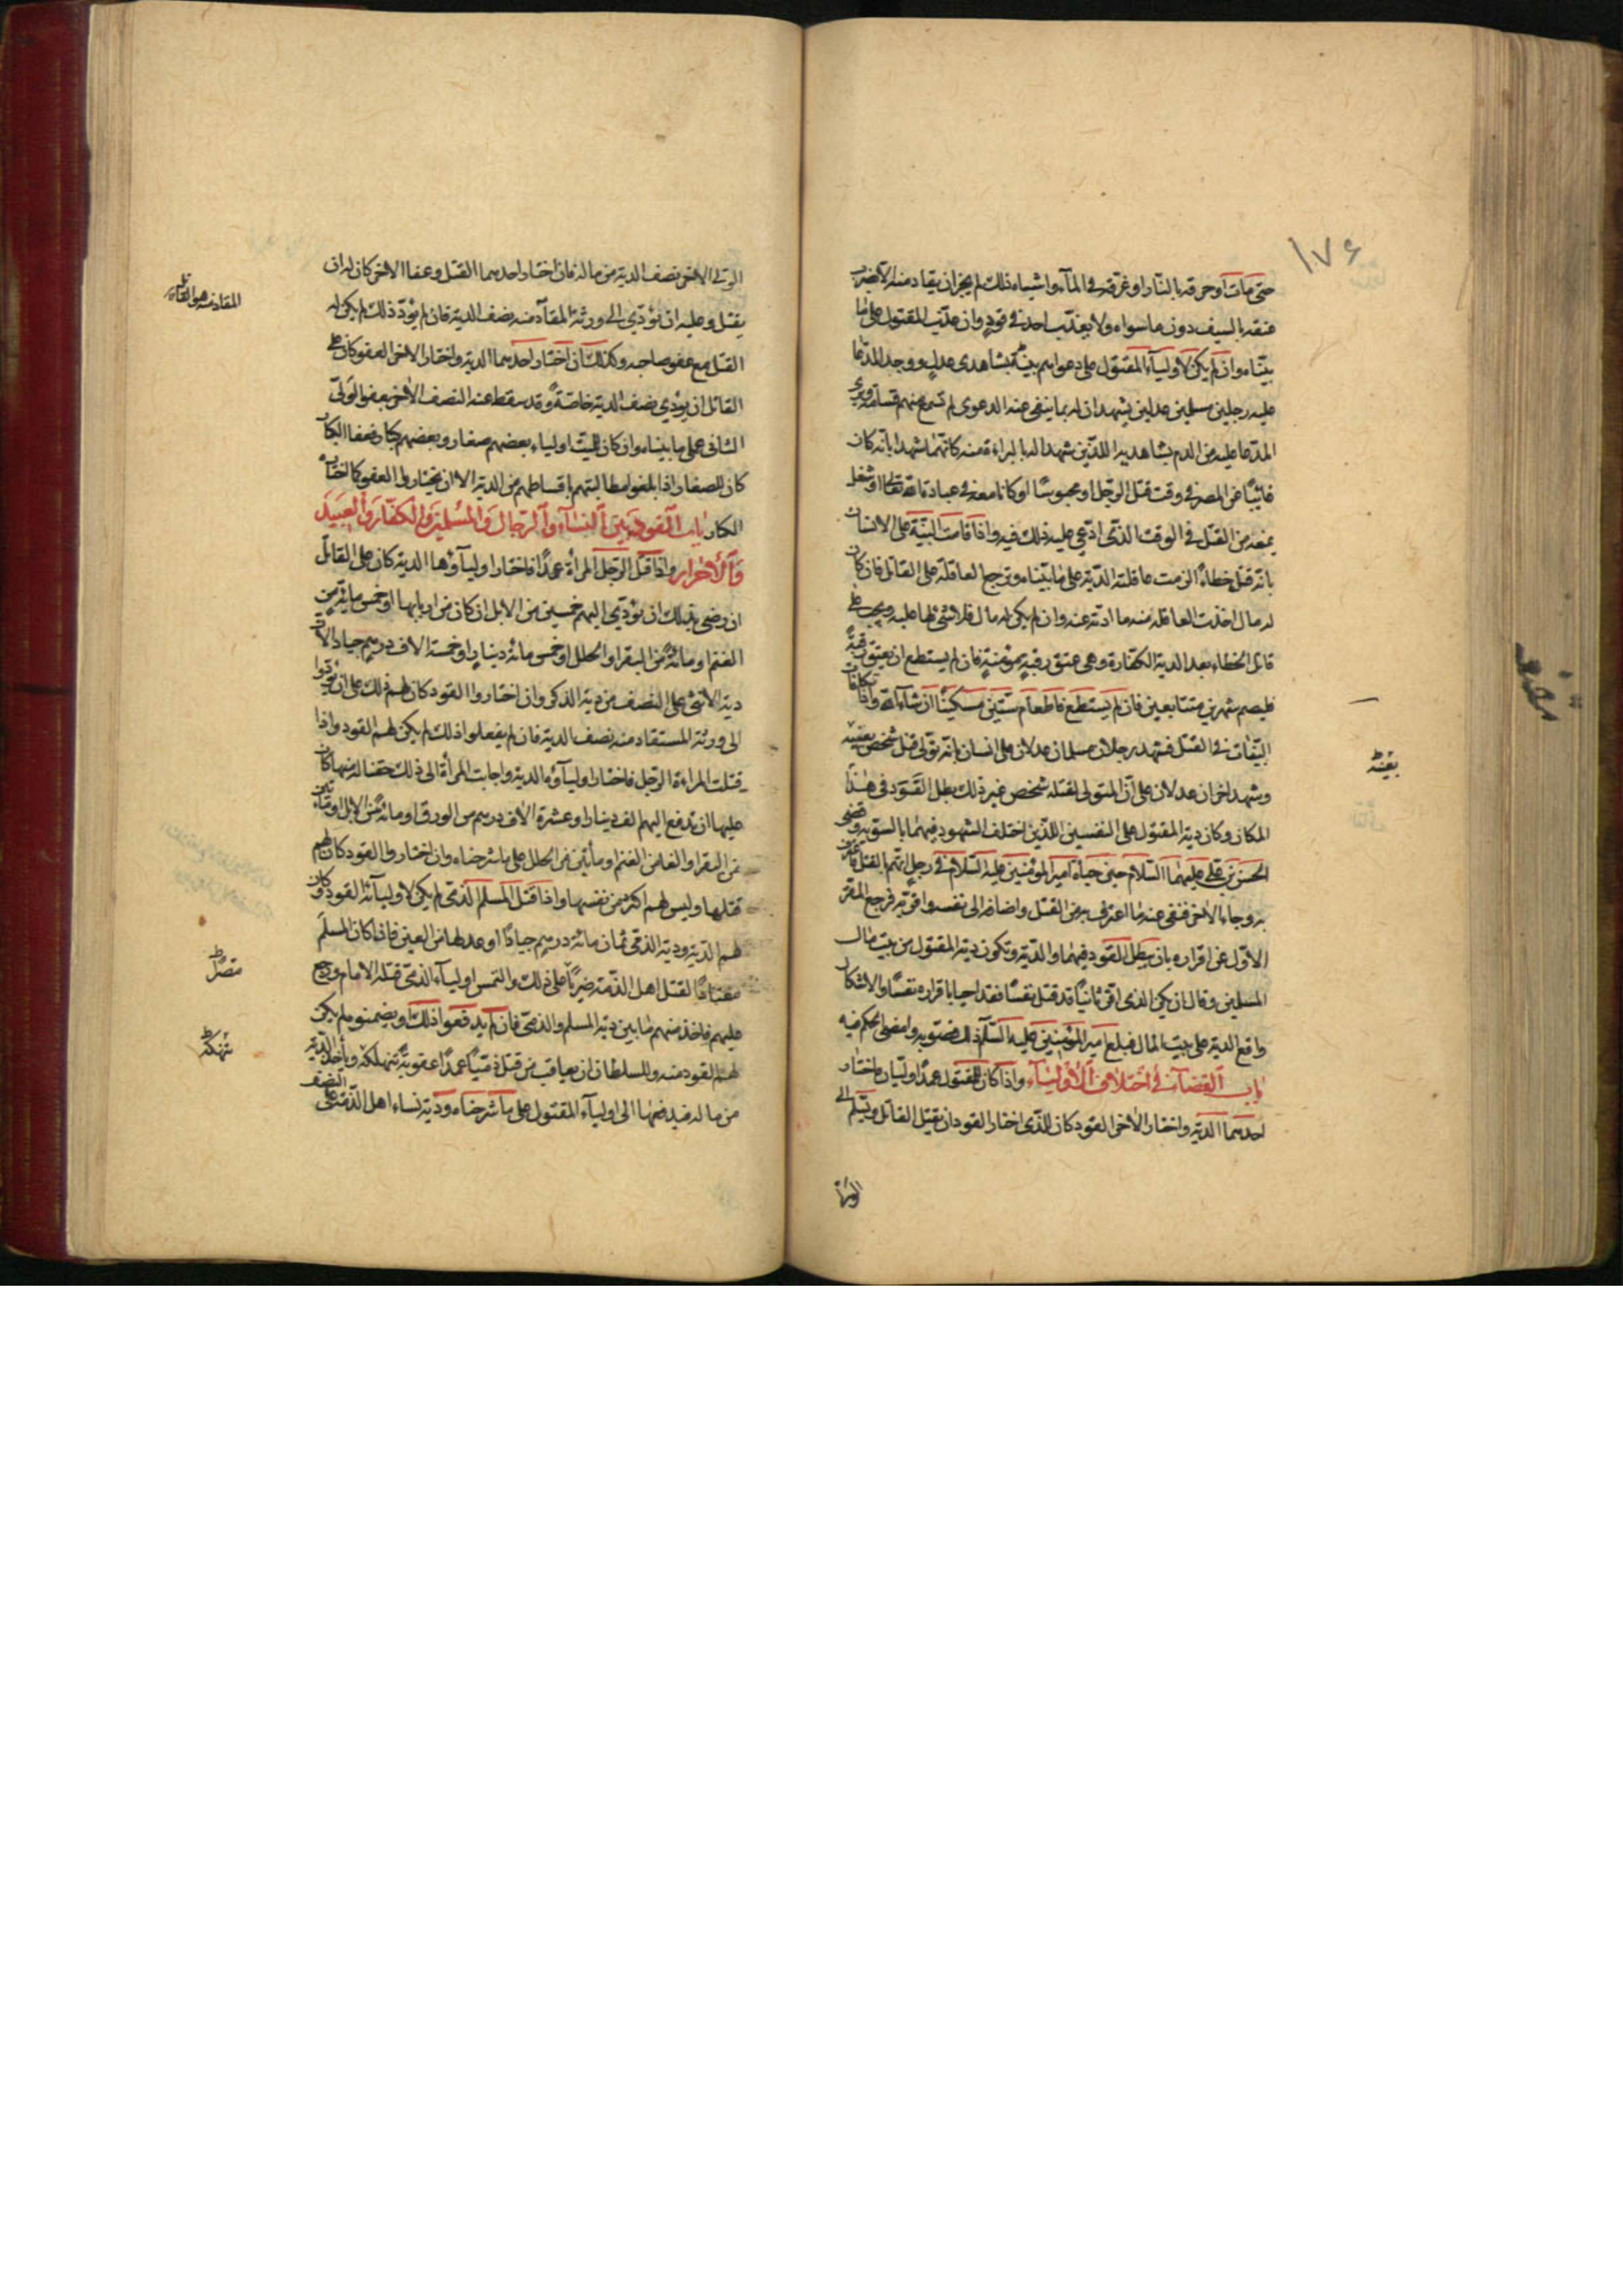 ١٧۶
حتى مات او حرقه بالنار او غرقه في المآء واشباه ذلك لم يجز ان يقاد منه الا بضرب
عنقه بالسيف دون ما سواه ولا يعذب احد في قود وان عذب المقتول على ما
بيناه وان لم يكن لاوليآء المقتول على دعواهم بينة بشاهدى عدل ووجد المدعا
عليه رجلين مسلمين عدلين يشهدان له بما ينفى عنه الدعوى لم تسمع منهم قسامة وبرئ
المدعا عليه من الدم بشاهديه اللذين شهدا له بالبراءة منه كانهما شهدا بانه كان
غائبًا عن المصر في وقت قتل الرجل او محبوسًا او كانا معه في عبادة الله تعالى او شغل
يمنعه من القتل في الوقت الذى ادعى عليه ذلك فيه واذا قامت البينة على الانسان
بانه قتل خطاءً الزمت عاقلته الدية على ما بيناه وترجع العاقلة على القاتل فان كان
له مال اخذت العاقلة منه ما ادته عنه وان لم يكن له مال فلا شئ لها عليه ويجب على
قاتل الخطاء بعد الدية الكفارة وهي عتق رقبةٍ مؤمنةٍ فان لم يستطع ان يعتق رقبةً
فليصم شهرين متتابعين فان لم يستطع فاطعام ستين مسكينًا ان شاء الله واذا تكافات
البينات في القتل فشهد رجلان مسلمان عدلان على انسان بانه تولى قتل شخص بعينه
وشهد اخران عدلان على ان المتولى لقتله شخص غير ذلك بطل القود في هذا
المكان وكان دية المقتول على النفسين اللذين اختلف الشهود فيهما بالسوية وقضى
الحسن بن على عليهما السلام حين حياة امير المؤمنين عليه السلام في رجل اتهم بالقتل فاعترف
به وجاء الاخر فنفى عنه ما اعترف به من القتل واضافه الى نفسه واقر به فرجع المقر
الاول عن اقراره بان يبطل القود فيهما والدية وتكون دية المقتول من بيت مال
المسلمين وقال ان يكن الذى اقر ثانيًا قد قتل نفسًا فقد احيا باقراره نفسًا والاشكال
واقع الدية على بيت المال فبلغ امير المؤمنين عليه السلام ذلك فصوبه وامضى الحكم فيه
باب القضآء في اختلاف الاوليآء واذا كان للمقتول عمدًا وليان فاختار
احدهما الدية واختار الاخر القود كان للذى اختار القود ان يقتل القاتل ويسلم الى
بعينه
الولى الاخر نصف الدية من ماله فان اختار احدهما القتل وعفا الاخر كان له ان
يقتل وعليه ان يؤدي الى ورثة المقاد منه نصف الدية فان لم يؤد ذلك لم يكن له
القتل مع عفو صاحبه وكذلك ان اختار احدهما الدية واختار الاخر العفو كان على
القاتل ان يؤدي نصف الدية خاصة وقد سقط عنه النصف الاخر بعفو الولى
الثانى على ما بيناه وان كان للميت اولياء بعضهم صغار وبعضهم كبار فعفا الكبار
كان للصغار اذا بلغوا مطالبتهم باقساطهم من الدية الا ان يختاروا العفو كما اختاره
الكبار باب القود بين النسآء والرجال والمسلمين والكفار والعبيد
والاحرار واذا قتل الرجل المرأة عمدًا فاختار اوليآؤها الدية كان على القاتل
ان رضى بذلك ان يؤدي اليهم خمسين من الابل ان كان من اربابها او خمس مائة من
الغنم او مائةً من البقر او الحلل او خمس مائة دينارٍ او خمسة الاف درهم جيادا لان
دية الانثى على النصف من دية الذكر وان اختاروا القود كان لهم ذلك على ان يؤدوا
الى ورثة المستقاد منه نصف الدية فان لم يفعلوا ذلك لم يكن لهم القود واذا
قتلت المراءة الرجل فاختار اوليآؤه الدية واجابت المرأة الى ذلك حقنا لدمها كان
عليها ان تدفع اليهم الف دينار او عشرة الاف درهم من الورق او مائةً من الابل او مأتين
من البقر او الفا من الغنم او مأتين من الحلل على ما شرحناه وان اختاروا القود كان لهم
قتلها وليس لهم اكثر من نفسها واذا قتل المسلم الذمى لم يكن لاوليائه القود وكان
لهم الدية ودية الذمى ثمان مائة درهم جيادًا او عدلها من العين فاذا كان المسلم
معتادًا لقتل اهل الذمة ضربًا على ذلك والتمس اوليآء الذمى قتله الامام ورجع
عليهم فاخذ منهم ما بين دية المسلم والذمى فان لم يدفعوا ذلك ويضمنوه لم يكن
لهم القود منه وللسلطان ان يعاقب من قتل ذميًا عمدًا عقوبةً تنهكه ويأخذ الدية
من ماله فيدفعها الى اوليآء المقتول على ما شرحناه ودية نساء اهل الذمة على النصف